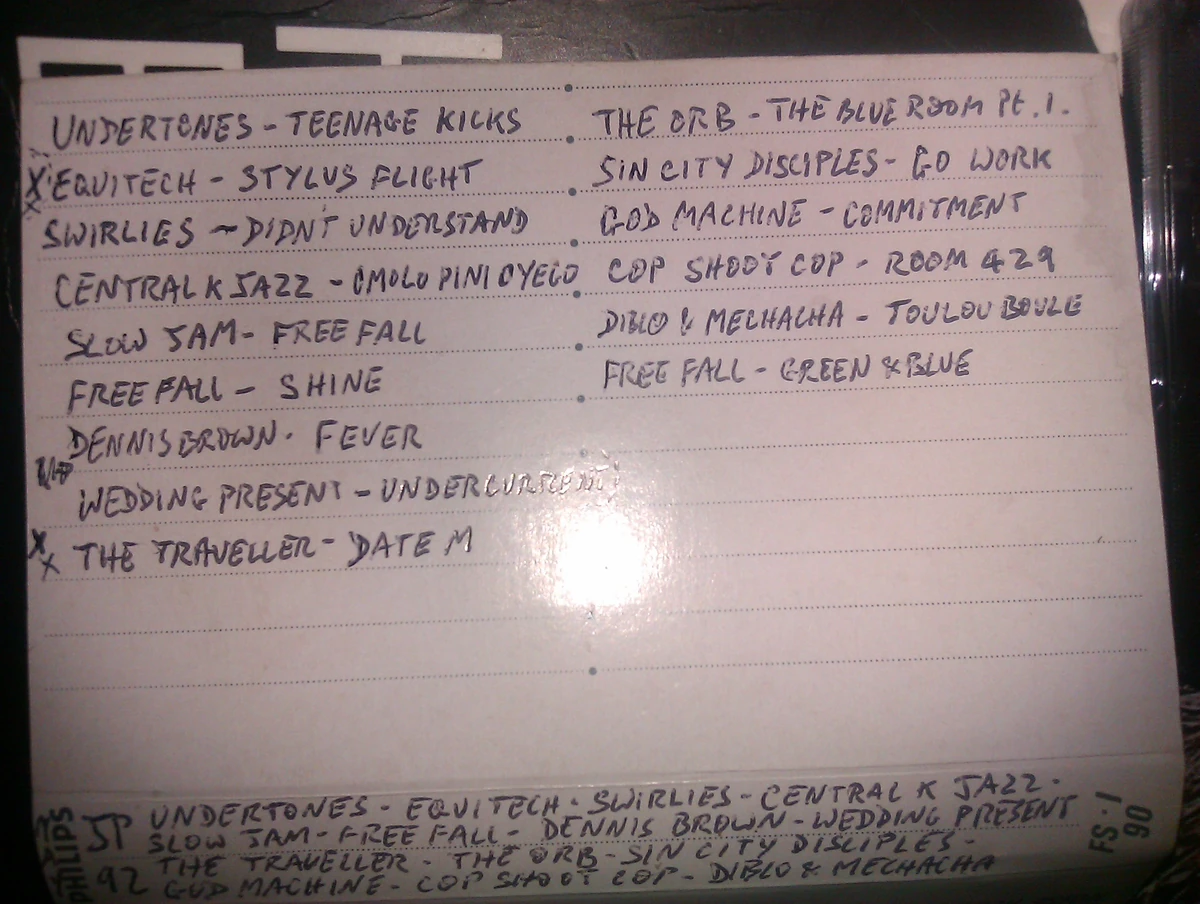 UNDERTONES - TEENAGE KICKS
X EQUITECH - STYLUS FLIGHT
SWIRLIES - DIDN'T UNDERSTAND
CENTRAL K JAZZ - OMOLO PINI OYEGO
SLOW JAM - FREE FALL
FREE FALL - SHINE
DENNIS BROWN - FEVER
WEDDING PRESENT - UNDERCURRENT
X X THE TRAVELLER - DATE M
THE ORB - THE BLUE ROOM Pt. 1.
SIN CITY DISCIPLES - GO WORK
GOD MACHINE - COMMITMENT
COP SHOOT COP - ROOM 429
DIBLO & MECHACHA - TOULOU BOULE
FREE FALL - GREEN & BLUE
PHILIPS
JP
92
UNDERTONES - EQUITECH - SWIRLIES - CENTRAL K JAZZ -
SLOW JAM - FREE FALL - DENNIS BROWN - WEDDING PRESENT
THE TRAVELLER - THE ORB - SIN CITY DISCIPLES -
GOD MACHINE - COP SHOOT COP - DIBLO & MECHACHA
FS-I
90